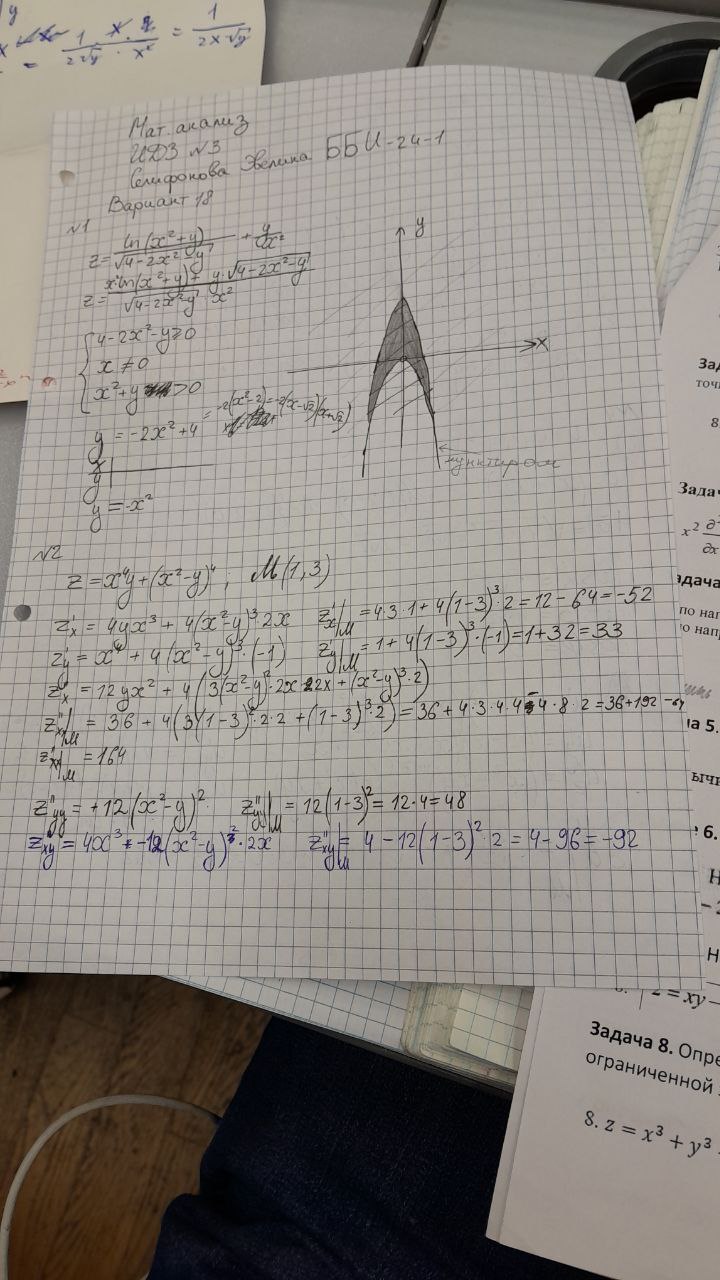 y
= 1/(2√y) · x/x² = 1/(2x√y)
Мат. анализ
ИДЗ №3
Селифонова Эвелина ББИ-24-1
Вариант 18
№1
z = ln(x²+y)/√(4-2x²-y) + y/x²
z = (x²ln(x²+y) + y·√(4-2x²-y))/(√(4-2x²-y) · x²)
4-2x²-y≥0
x ≠ 0
x²+y >0
y = -2x²+4 = -2(x²-2) = -2(x-√2)(x+√2)
x
y
y = -x²
y
x
пунктиром
№2
z = x⁴y+(x²-y)⁴; M(1,3)
z'x = 4yx³ + 4(x²-y)³·2x z'x|M = 4·3·1+4(1-3)³·2 = 12-64 = -52
z'y = x⁴ + 4(x²-y)³·(-1) z'y|M = 1+4(1-3)³·(-1) = 1+32 = 33
z''x = 12yx² + 4(3(x²-y)²·2x·2x+(x²-y)³·2)
z''xx|M = 36 + 4(3(1-3)²·2·2 + (1-3)³·2) = 36+4·3·4·4-4·8·2 = 36+192-64
z''xx|M = 164
z''yy = +12(x²-y)² z''yy|M = 12(1-3)² = 12·4 = 48
z''xy = 4x³ -12(x²-y)²·2x z''xy|M = 4-12(1-3)²·2 = 4-96 = -92
За
точ
8
Задач
x² ∂
∂x
адача
по нап
о напр
а 5.
ычн
6.
Н
z = xy
Задача 8. Опре
ограниченной
8. z = x³ + y³